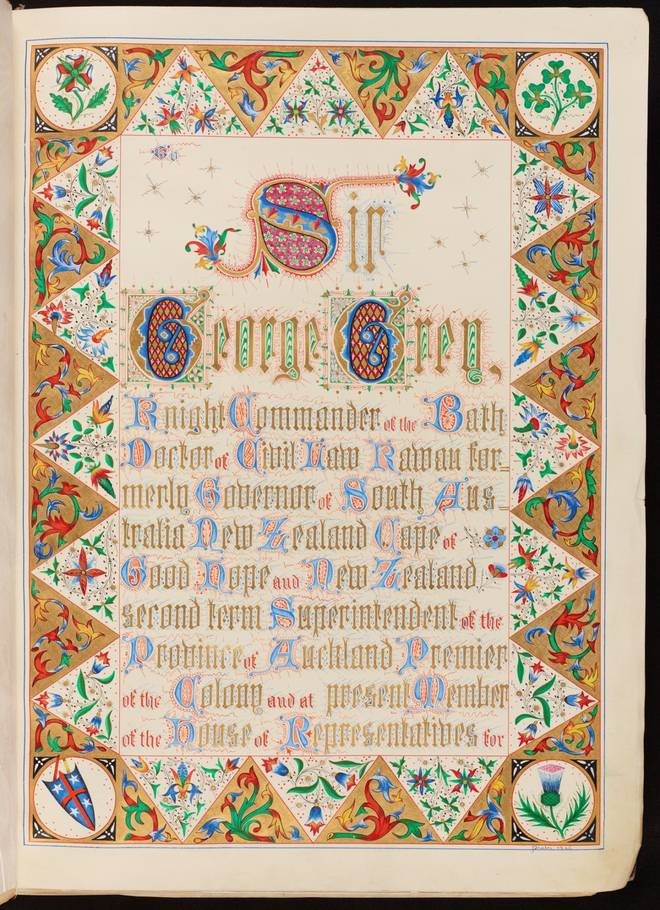 To
Sir
George Grey,
Knight Commander of the Bath
Doctor of Civil Law Kawau for=
merly Governor of South Aus=
tralia New Zealand Cape of
Good Hope and New Zealand
second term Superintendent of the
Province of Auckland Premier
of the Colony and at present Member
of the House of Representatives for